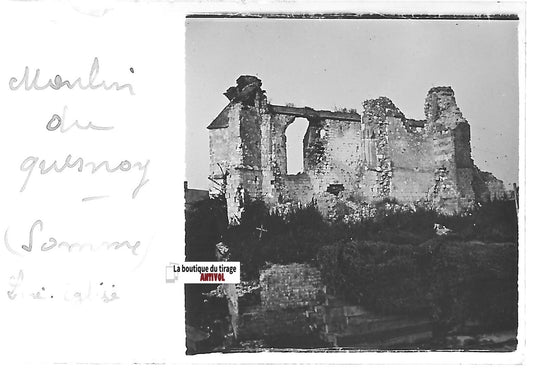 Moulin
du
quesnoy
(Somme)
église
La boutique du tirage
ANTIVOL